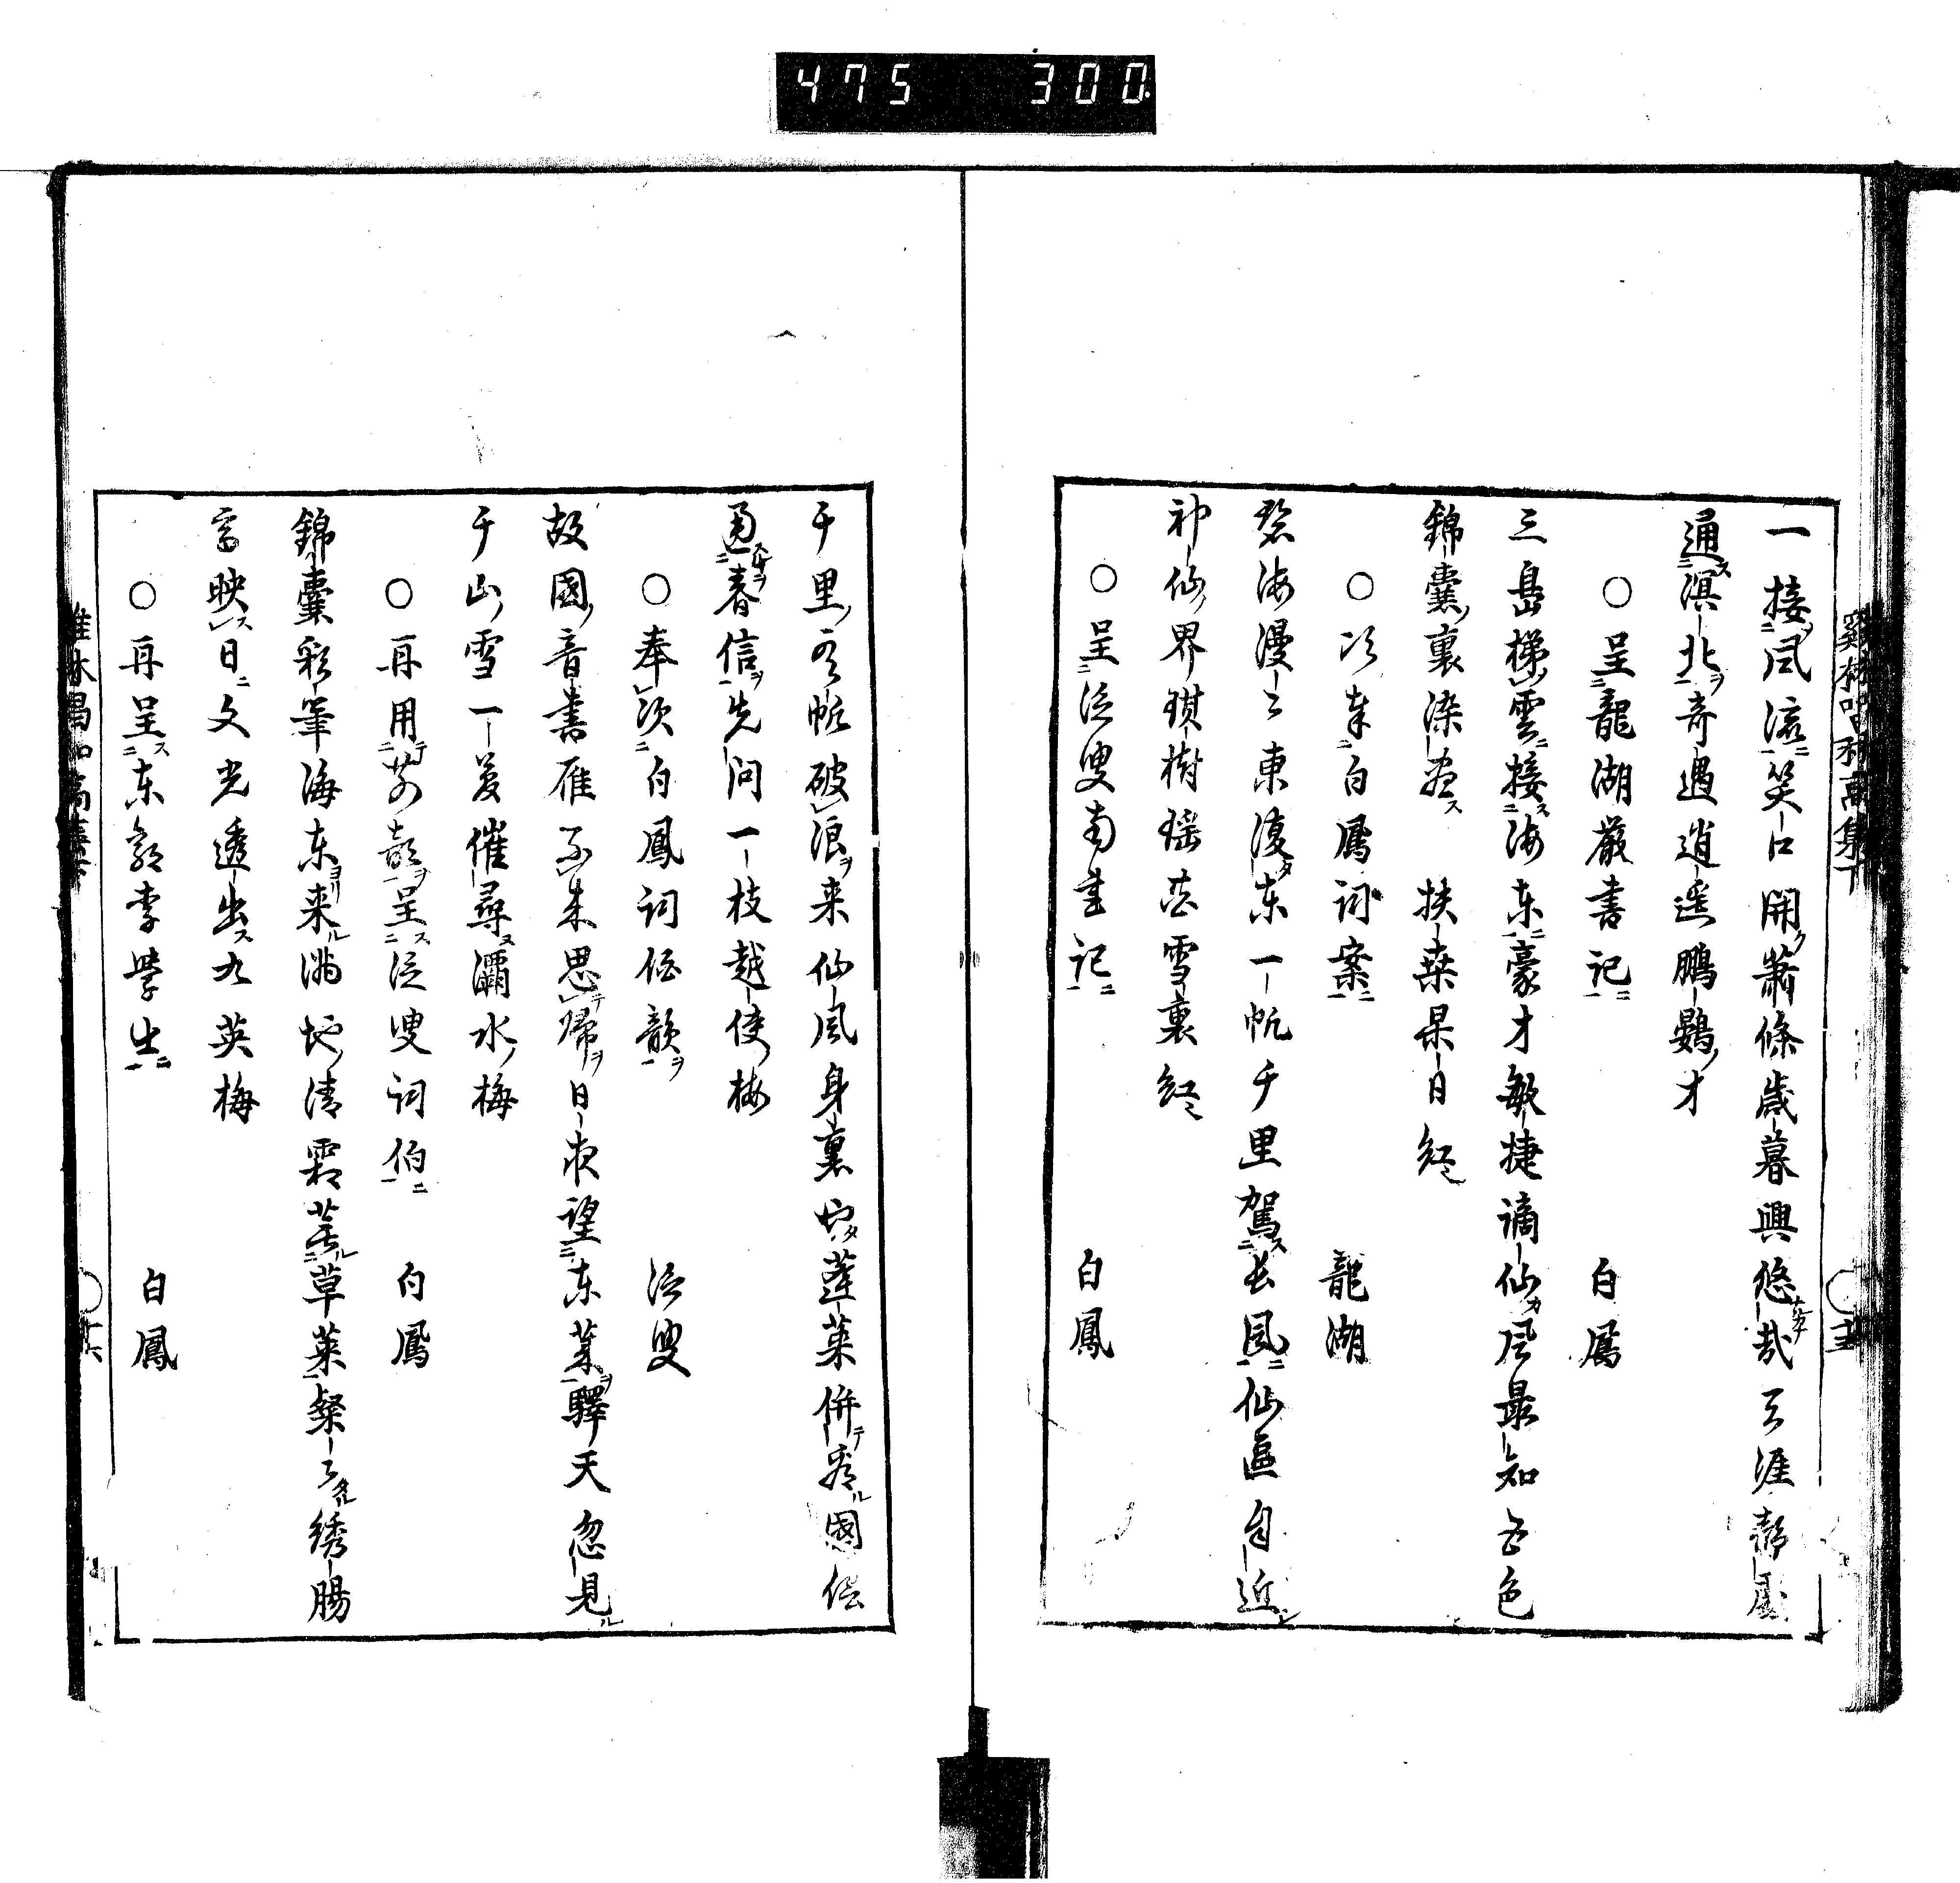 475 300
雞林唱和嵩集下
一接風流笑口開蕭條歳暮興悠哉天涯都
通溟北奇遇逍遥鵬鷃才
○呈龍湖嚴書記 白鳳
三島梯雲接海東豪才敏捷謫仙風最知五色
錦囊裏染盡扶桑杲日紅
○次奉白鳳詞案 龍湖
碧海漫々東復東一帆千里駕長風仙區自近
神仙界琪樹瑶花雪裏紅
○呈泛叟南書記 白鳳
千里雲帆破浪来仙風身裏地蓬莱併看國信
通春信先問一枝越使梅
○奉次白鳳詞伯韻 泛叟
故國音書雁不来思歸日夜望東莱驛天忽見
千山雪一夢催尋灞水梅
○再用前韻呈泛叟詞伯 白鳳
錦囊彩筆海東来満地清霜草莱粲々綉腸
字映日文光透出九英梅
○再呈東郭李學士 白鳳